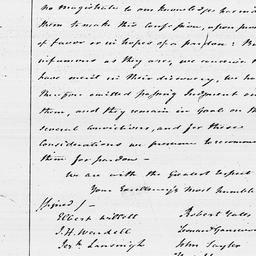 no magistrate to our knowledge has ind
them to make this confession, upon prom
of favor or in hopes of a pardon: But
infamous as they are, we conceive th
have merit in their discovery, we ha
therefore omitted passing Judgment on
them, and they remain in Gaol on th
several convictions, and for these
considerations we presume to recomme
them for pardon —
We are with the Greatest respect
Your Excellency's Most humble
Signed /
Robert Yates
J. H. Wendell
Leonard Gansevoort
John Taylor